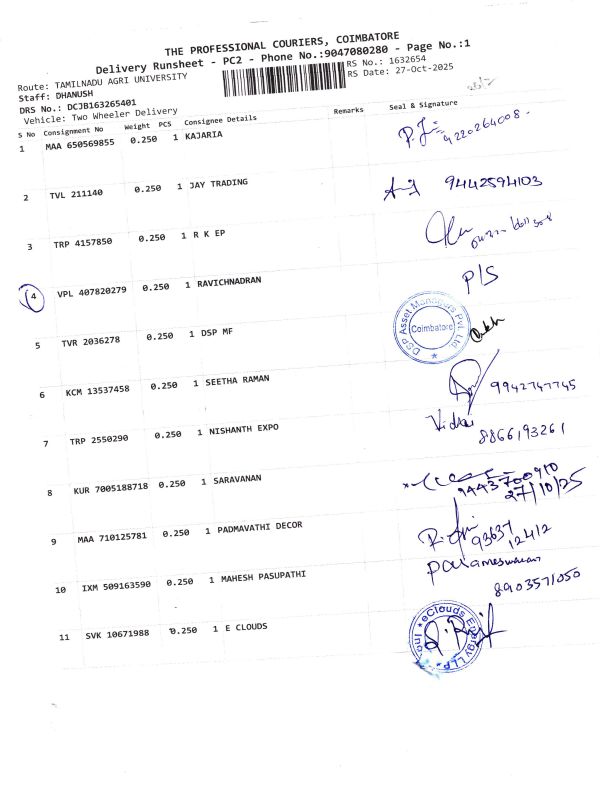 THE PROFESSIONAL COURIERS, COIMBATORE
Delivery Runsheet - PC2 - Phone No.:9047080280 - Page No.:1
Route: TAMILNADU AGRI UNIVERSITY
RS No.: 1632654
Staff: DHANUSH
RS Date: 27-Oct-2025
DRS No.: DCJB163265401
Vehicle: Two Wheeler Delivery
S No Consignment No Weight PCS Consignee Details Remarks Seal & Signature
1 MAA 650569855 0.250 1 KAJARIA 9220264008
2 TVL 211140 0.250 1 JAY TRADING 9442594103
3 TRP 4157850 0.250 1 R K EP
4 VPL 407820279 0.250 1 RAVICHNADRAN P/S
5 TVR 2036278 0.250 1 DSP MF
DSP Asset Managers Pvt. Ltd. Coimbatore
6 KCM 13537458 0.250 1 SEETHA RAMAN 9942747745
7 TRP 2550290 0.250 1 NISHANTH EXPO Vidhai 8866193261
8 KUR 7005188718 0.250 1 SARAVANAN 9443700910
27/10/25
9 MAA 710125781 0.250 1 PADMAVATHI DECOR 93637
12412
10 IXM 509163590 0.250 1 MAHESH PASUPATHI Parameswaran
8903571050
11 SVK 10671988 0.250 1 E CLOUDS
eClouds Energy LLP